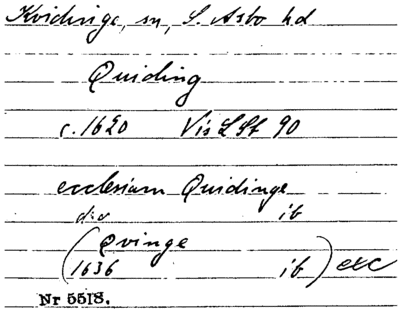 Kvidinge, sn, S. Åsbo hd
Quiding
c. 1620 Vis L St 90
ecclesiam Quidinge
d:o ib
(Qvinge
1636 ib) exc
Nr 5518.